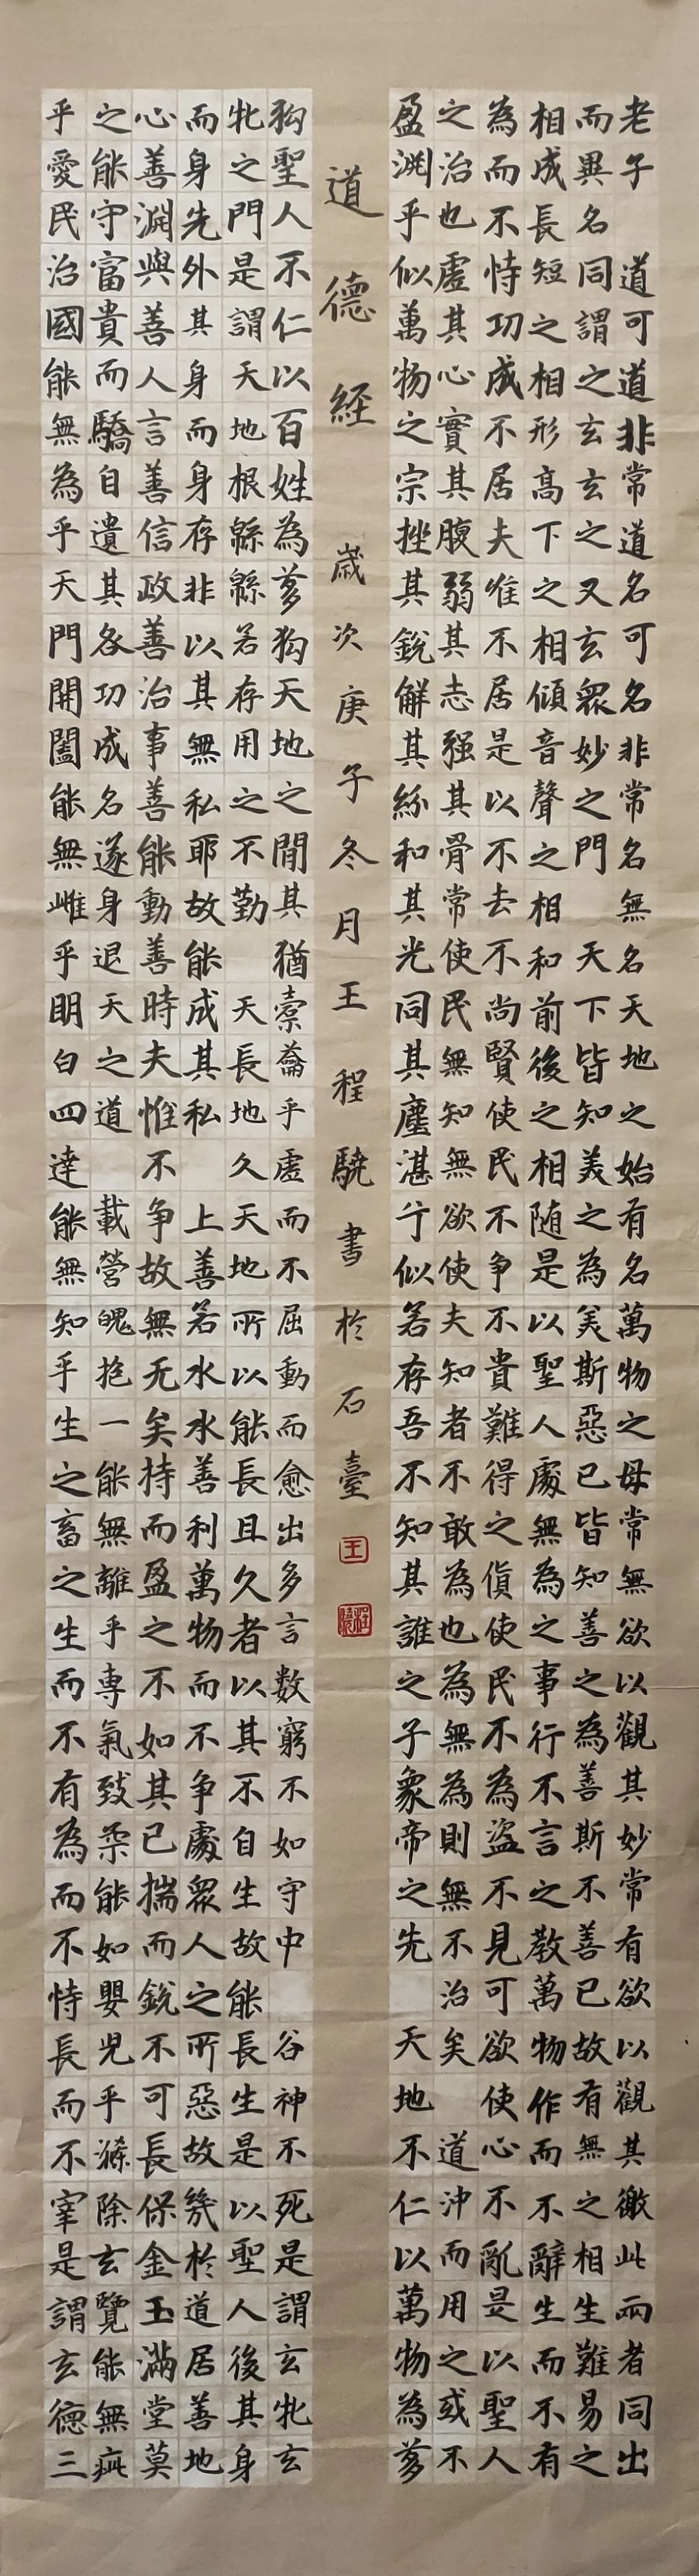 老子　道可道非常道名可名非常名無名天地之始有名萬物之母常無欲以觀其妙常有欲以觀其徼此兩者同出
而異名同謂之玄玄之又玄衆妙之門　天下皆知美之為美斯惡已皆知善之為善斯不善已故有無之相生難易之
相成長短之相形高下之相傾音聲之相和前後之相随是以聖人處無為之事行不言之教萬物作而不辭生而不有
為而不恃功成不居夫唯不居是以不去不尚賢使民不争不貴難得之貨使民不為盜不見可欲使心不亂是以聖人
之治也虚其心實其腹弱其志强其骨常使民無知無欲使夫知者不敢為也為無為則無不治矣　道沖而用之或不
盈淵乎似萬物之宗挫其銳解其紛和其光同其塵湛兮似若存吾不知其誰之子象帝之先　天地不仁以萬物為芻
道德經　歲次庚子冬月王程驍書於石臺
狗聖人不仁以百姓為芻狗天地之間其猶橐籥乎虚而不屈動而愈出多言数窮不如守中　谷神不死是謂玄牝玄
牝之門是謂天地根緜緜若存用之不勤　天長地久天地所以能長且久者以其不自生故能長生是以聖人後其身
而身先外其身而身存非以其無私耶故能成其私　上善若水水善利萬物而不争處衆人之所惡故幾於道居善地
心善淵與善人言善信政善治事善能動善時夫惟不争故無尤矣持而盈之不如其已揣而銳不可長保金玉滿堂莫
之能守富貴而驕自遺其咎功成名遂身退天之道　載營魄抱一能無離乎専氣致柔能如嬰児乎滌除玄覽能無疵
乎愛民治國能無為乎天門開闔能無雌乎明白四達能無知乎生之畜之生而不有為而不恃長而不宰是謂玄德三